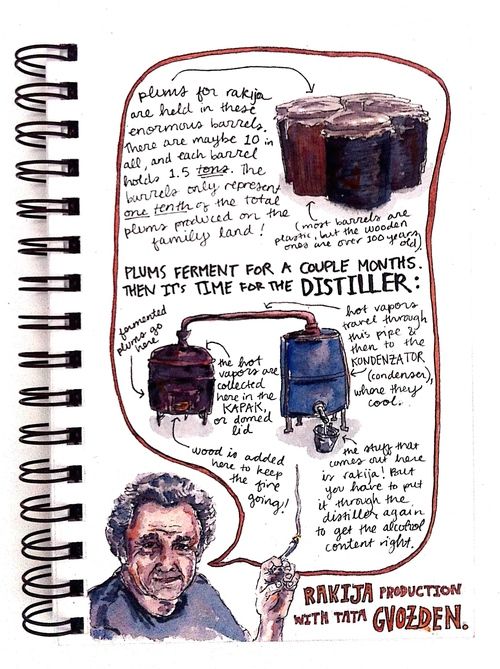 plums for rakija
are held in these
enormous barrels.
There are maybe 10 in
all, and each barrel
holds 1.5 tons. The
barrels only represent
one tenth of the total
plums produced on the
family land!
(most barrels are
plastic, but the wooden
ones are over 100 years
old)
PLUMS FERMENT FOR A COUPLE MONTHS.
THEN IT'S TIME FOR THE DISTILLER:
fermented
plums go
here
the hot
vapors are
collected
here in the
KAPAK,
or domed
lid
hot vapors
travel through
this pipe &
then to the
KONDENZATOR
(condenser),
where they
cool..
wood is added
here to keep
the fire
going!
the stuff that
comes out here
is rakija! But
you have to put
it through the
distiller again
to get the alcohol
content right.
RAKIJA PRODUCTION
WITH TATA GVOZDEN.